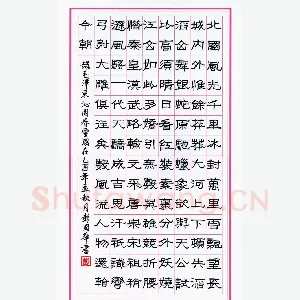 北國風光千里冰封萬里雪飄望長
城內外惟餘莽莽大河上下頓失滔
滔山舞銀蛇原馳蠟象欲與天公試
比高須晴日看紅裝素裹分外妖嬈
江山如此多嬌引無數英雄競折腰
惜秦皇漢武略輸文采唐宗宋祖稍
遜風騷一代天驕成吉思汗祇識彎
弓射大雕俱往矣數風流人物還看
今朝 錄毛澤東沁園春雪